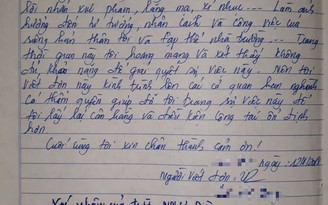 lời nhắn xúc phạm, hăng ma, xỉ nhục ... Làm ảnh
hưởng đến tư tưởng, nhân cách và công việc của
riêng bản thân tôi và tập thể nhà trường ... Trong
thời gian này tôi hoang mang và xét thấy không
đủ khả năng để giải quyết sự việc này. Nên tôi
viết đơn này kính trình lên các cơ quan ban nghành
có thẩm quyền giúp đỡ tôi trong sự việc này để
tôi lấy lại cân bằng và điều kiện công tác ổn định
hơn.
Cuối cùng tôi xin chân thành cảm ơn!
ngày
Người viết đơn